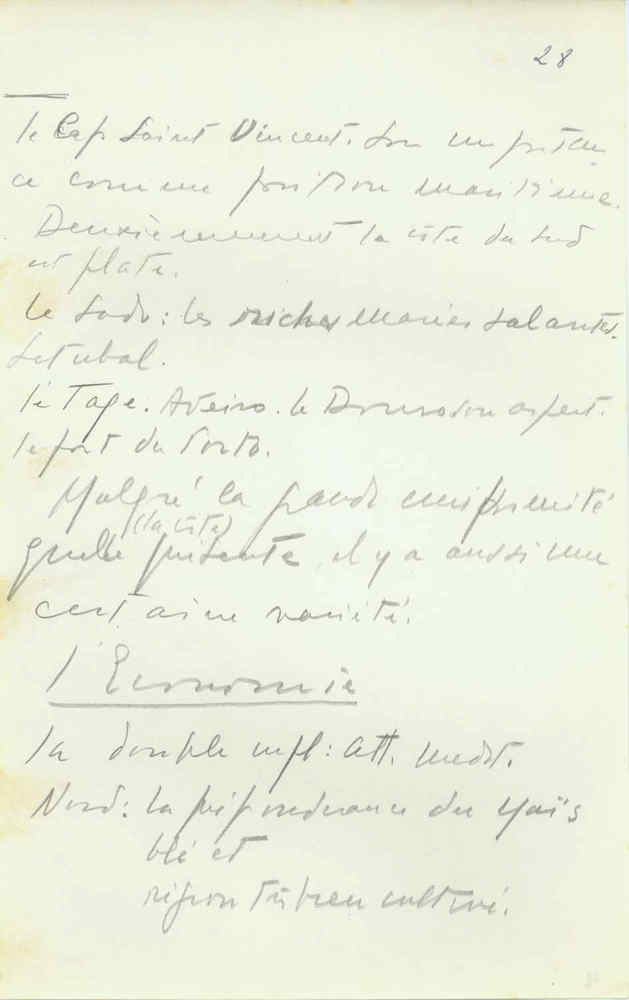 28
le Cap Saint Vincent. Son importan
ce comme position maritime.
Deuxièmement la côte du Sud
est plate.
Le Sado: les riches marais salantes.
Setubal.
le Tage. Aveiro. le Douro son aspect.
le port du Porto.
Malgré la grande uniformité
(la côte)
qu'elle présente, il y a aussi une
certaine varieté.
l'Economie
la double infl: Att. medit.
Nord: la préponderance du maïs
blé et
région très bien cultivé.